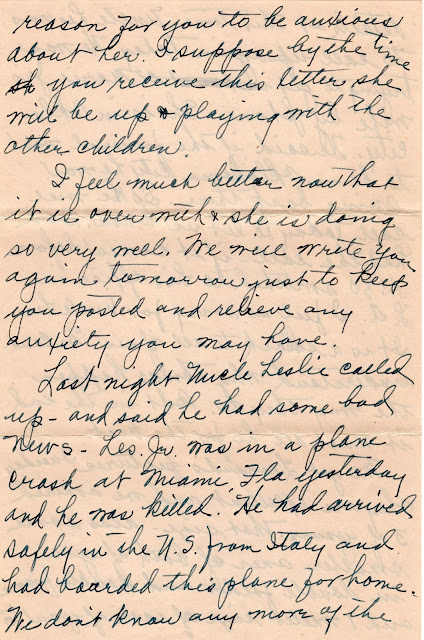 reason for you to be anxious
about her. I suppose by the time
sh you receive this letter she
will be up & playing with the
other children.
I feel much better now that
it is over with & she is doing
so very well. We will write you
again tomorrow just to keep
you posted and relieve any
anxiety you may have.
Last night Uncle Leslie called
up - and said he had some bad
news - Les. Jr. was in a plane
crash at Miami, Fla yesterday
and he was killed. He had arrived
safely in the U.S. from Italy and
had boarded this plane for home.
We don't know any more of the